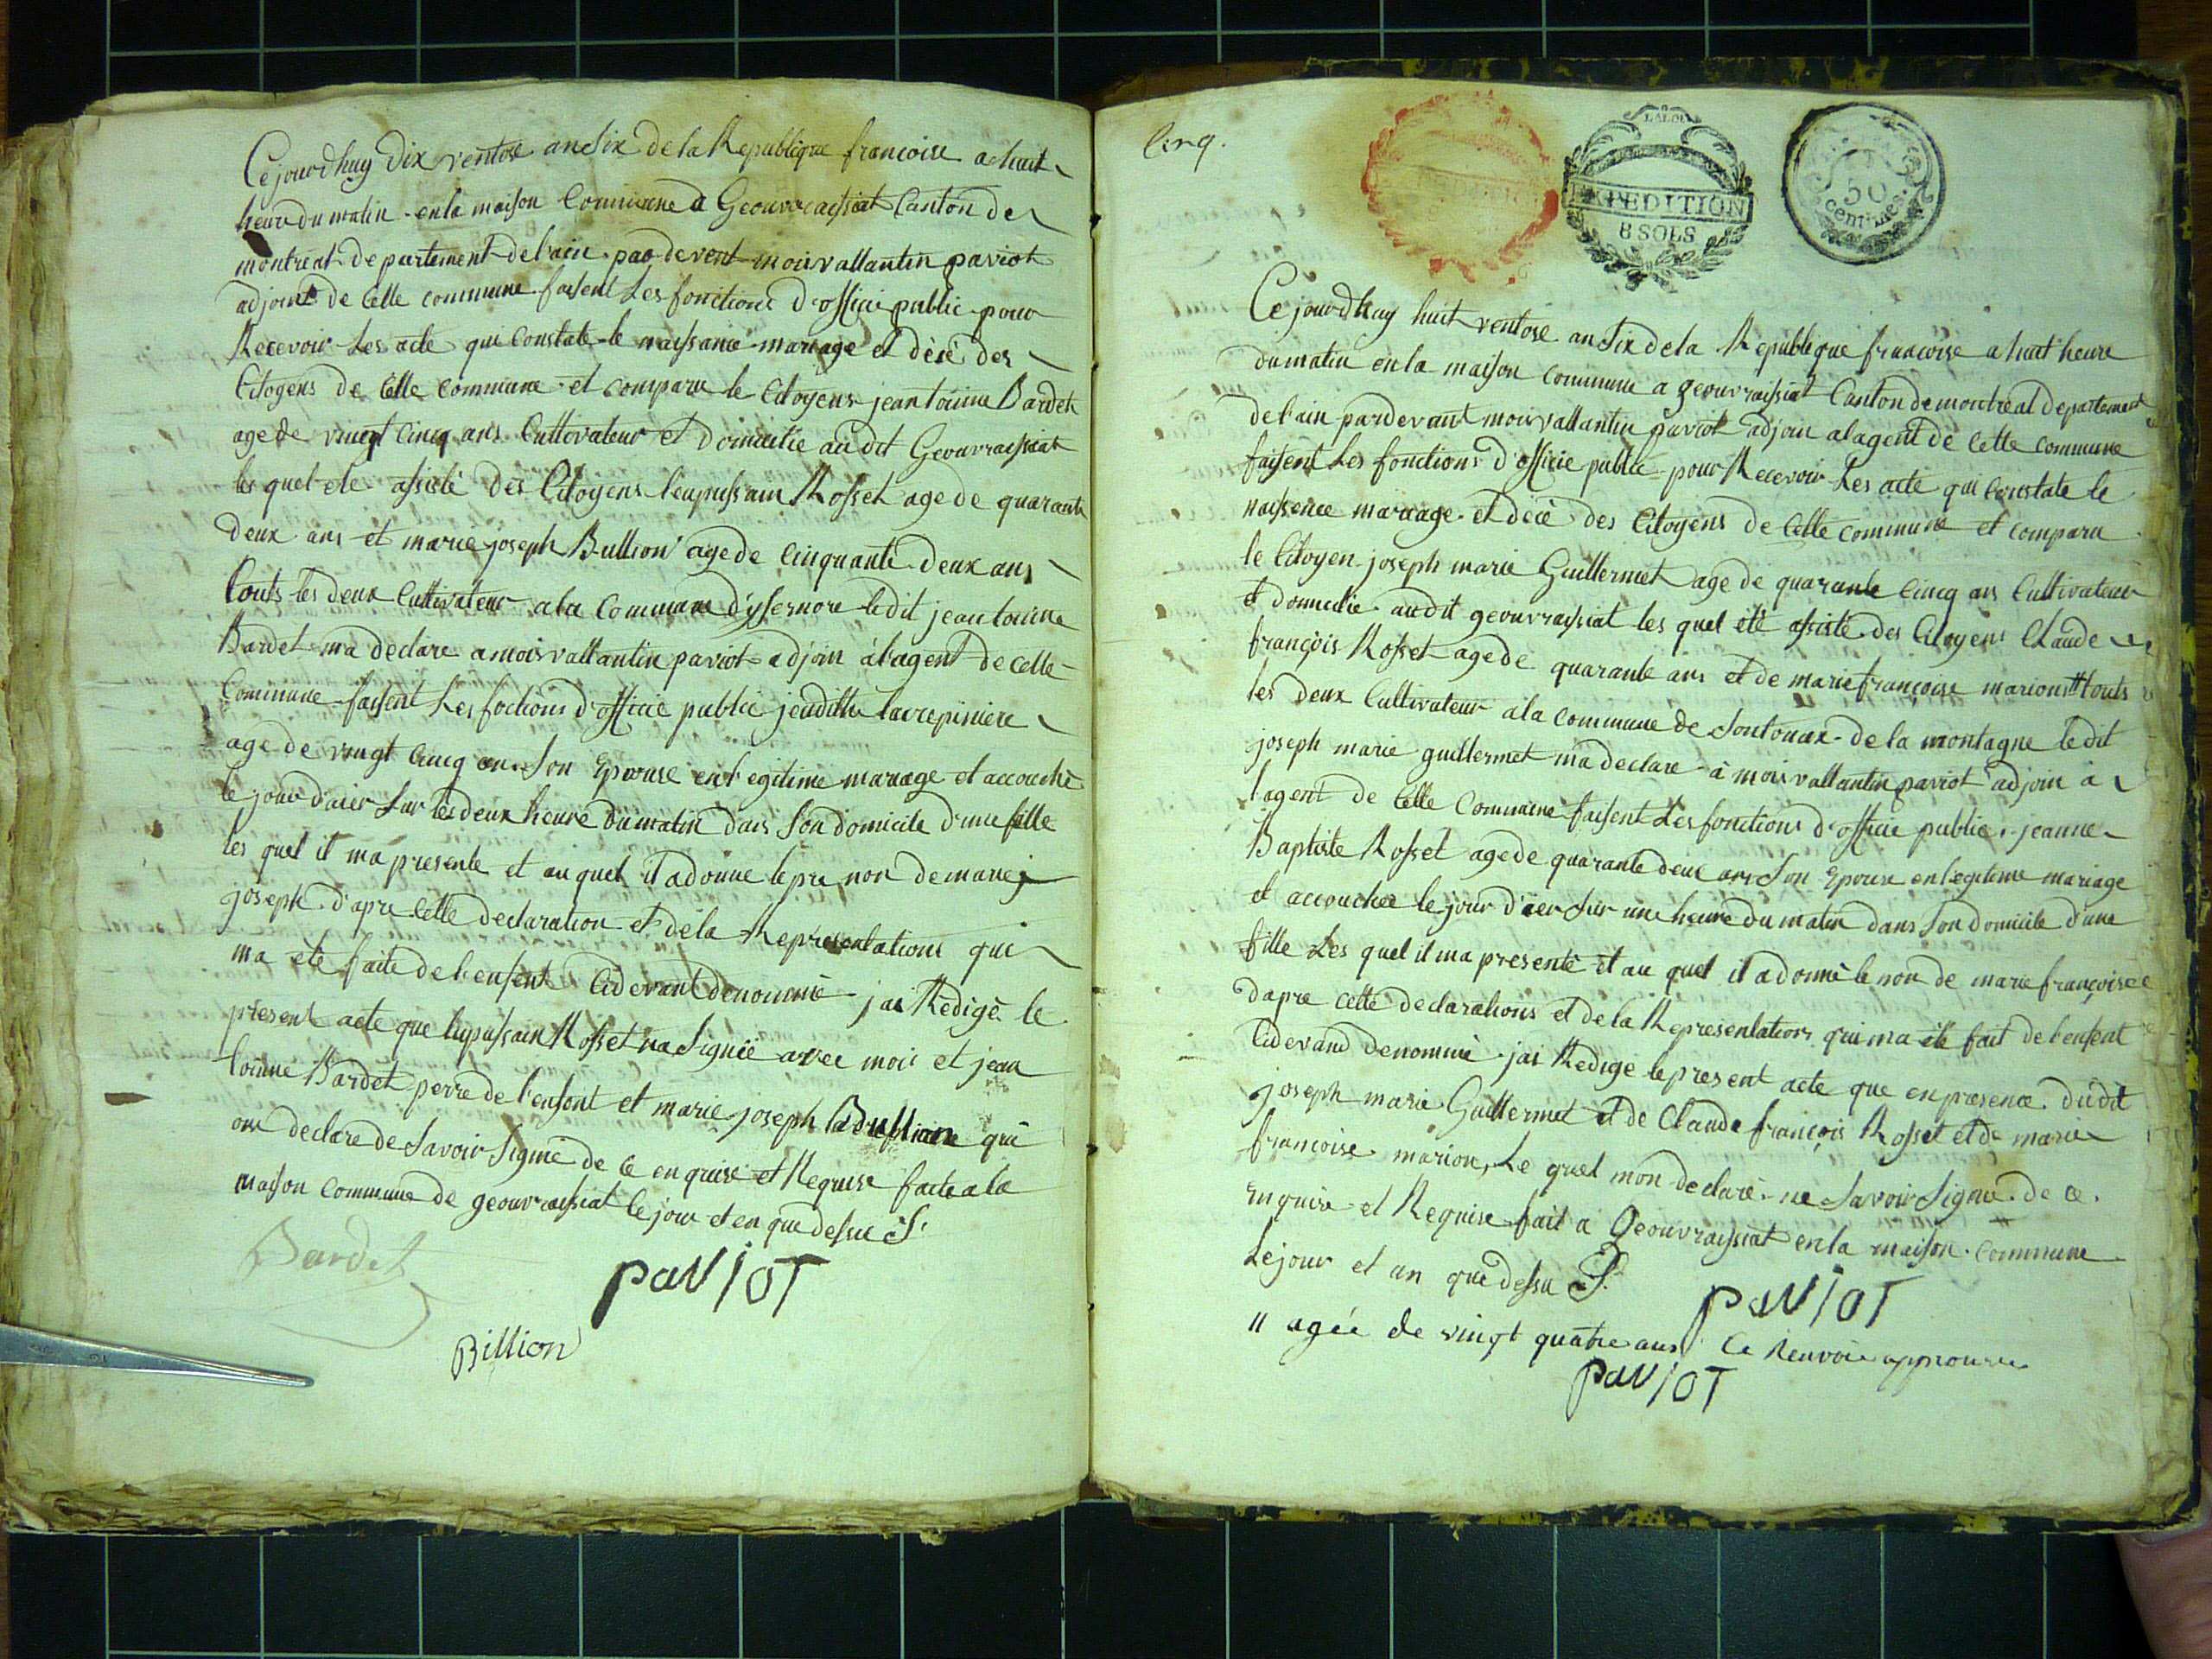 Cejourdhuy Dix ventose an Six de la Republique francoise a huit
heur du matin en la maison Commune a Geouvraissiat Canton de
montreat departement de l'ain par devent mois vallantin paviot
adjoint de Celle commune faisent Les fonctions d'officie public pour
Recevoir Les acte qui Constate le naissance mariage et décé des
Citogens de Celle Commune et comparu le Citoyens jeantoinne Bardet
age de vingt Cincq ans Cultivateur et Domicilie au dit Geouvraissiat
les quel ete assisté des Citogens l'eupussain Rosset age de quarante
deux ans et marie joseph Bullion age de Cinquante deux ans
touts les deux Cultivateur a la Commune d'ysernore ledit jeantoinne
Bardet ma declare a mois vallantin paviot adjoin à l'agent de celle
Commune faisent Les foctions d'officie public jeudithe lavrepiniere
age de vingt Cincq an Son Epouse en l'egitime mariage et accouché
le jour d'aier sur les deux heure du matin dans Son domicile d'une fille
les quel il ma presente et au quel il a donne le pre non de marie j
joseph d'apre Celle declaration et de la Representations qui
ma eté faite de l'ensent Cidevant denommé jai Redigé le
present acte que lepussain Rosset na Signée avec mois et jean
toinne Bardet perre de l'ensont et marie joseph qui
on declare de Savoir Signé de ce enquise et Requise faite a la
maison Commune de geouvraissiat le jour et en que dessu
Bardet
paviot
Billion
Cinq.
EXPEDITION
8 SOLS
50
centimes.
Ce jourdhuy huit ventose an Six de la Republique francoise a huit heure
du matin en la maison commune a geouvraissiat Canton de montreal departement
de l'ain pardevant mois vallantin paviot adjoin a lagent de Celle commune
faisent Les fonctions d'officie public pour Recevoir Les acte qui Constate le
naissence mariage et décé des Citoyens de Celle Commune et comparu
le Citoyen joseph marie Guillermet age de quarante Cincq ans Cultivateur
et domicilie audit geouvraissiat les quel été assisté des Citoyens Claude
françois Rosset age de quarante ans et de marie françoise marion # touts
les deux Cultivateur a la commune de Sontonax de la montagne le dit
joseph marie guillermet ma declare à mois vallantin paviot adjoin à
l'agent de Celle Commune faisent Les fonctions d'officie public jeanne
Baptiste Rosset age de quarante deux ans Son Epouse en l'egitime mariage
et accouchee le jour d'ier sur une heure du matin dans Son domicile d'une
fille Les quel il ma presenté et au quel il a donné le non de marie françoise
dapre cette declarations et de la Representations qui ma été fait de l'ensent
Cidevand denommé jai Redigé le present acte que en presence dudit
joseph marie Guillermet et de Claude françois Rosset et de marie
françoise marion Le quel mon declaré ne Savoir Signé de ce
enquise et Requise fait a Geouvraissiat en la maison Commune
Le jour et an que dessu
paviot
11 agée de vingt quatre ans Ce Renvoie approuvé
paviot